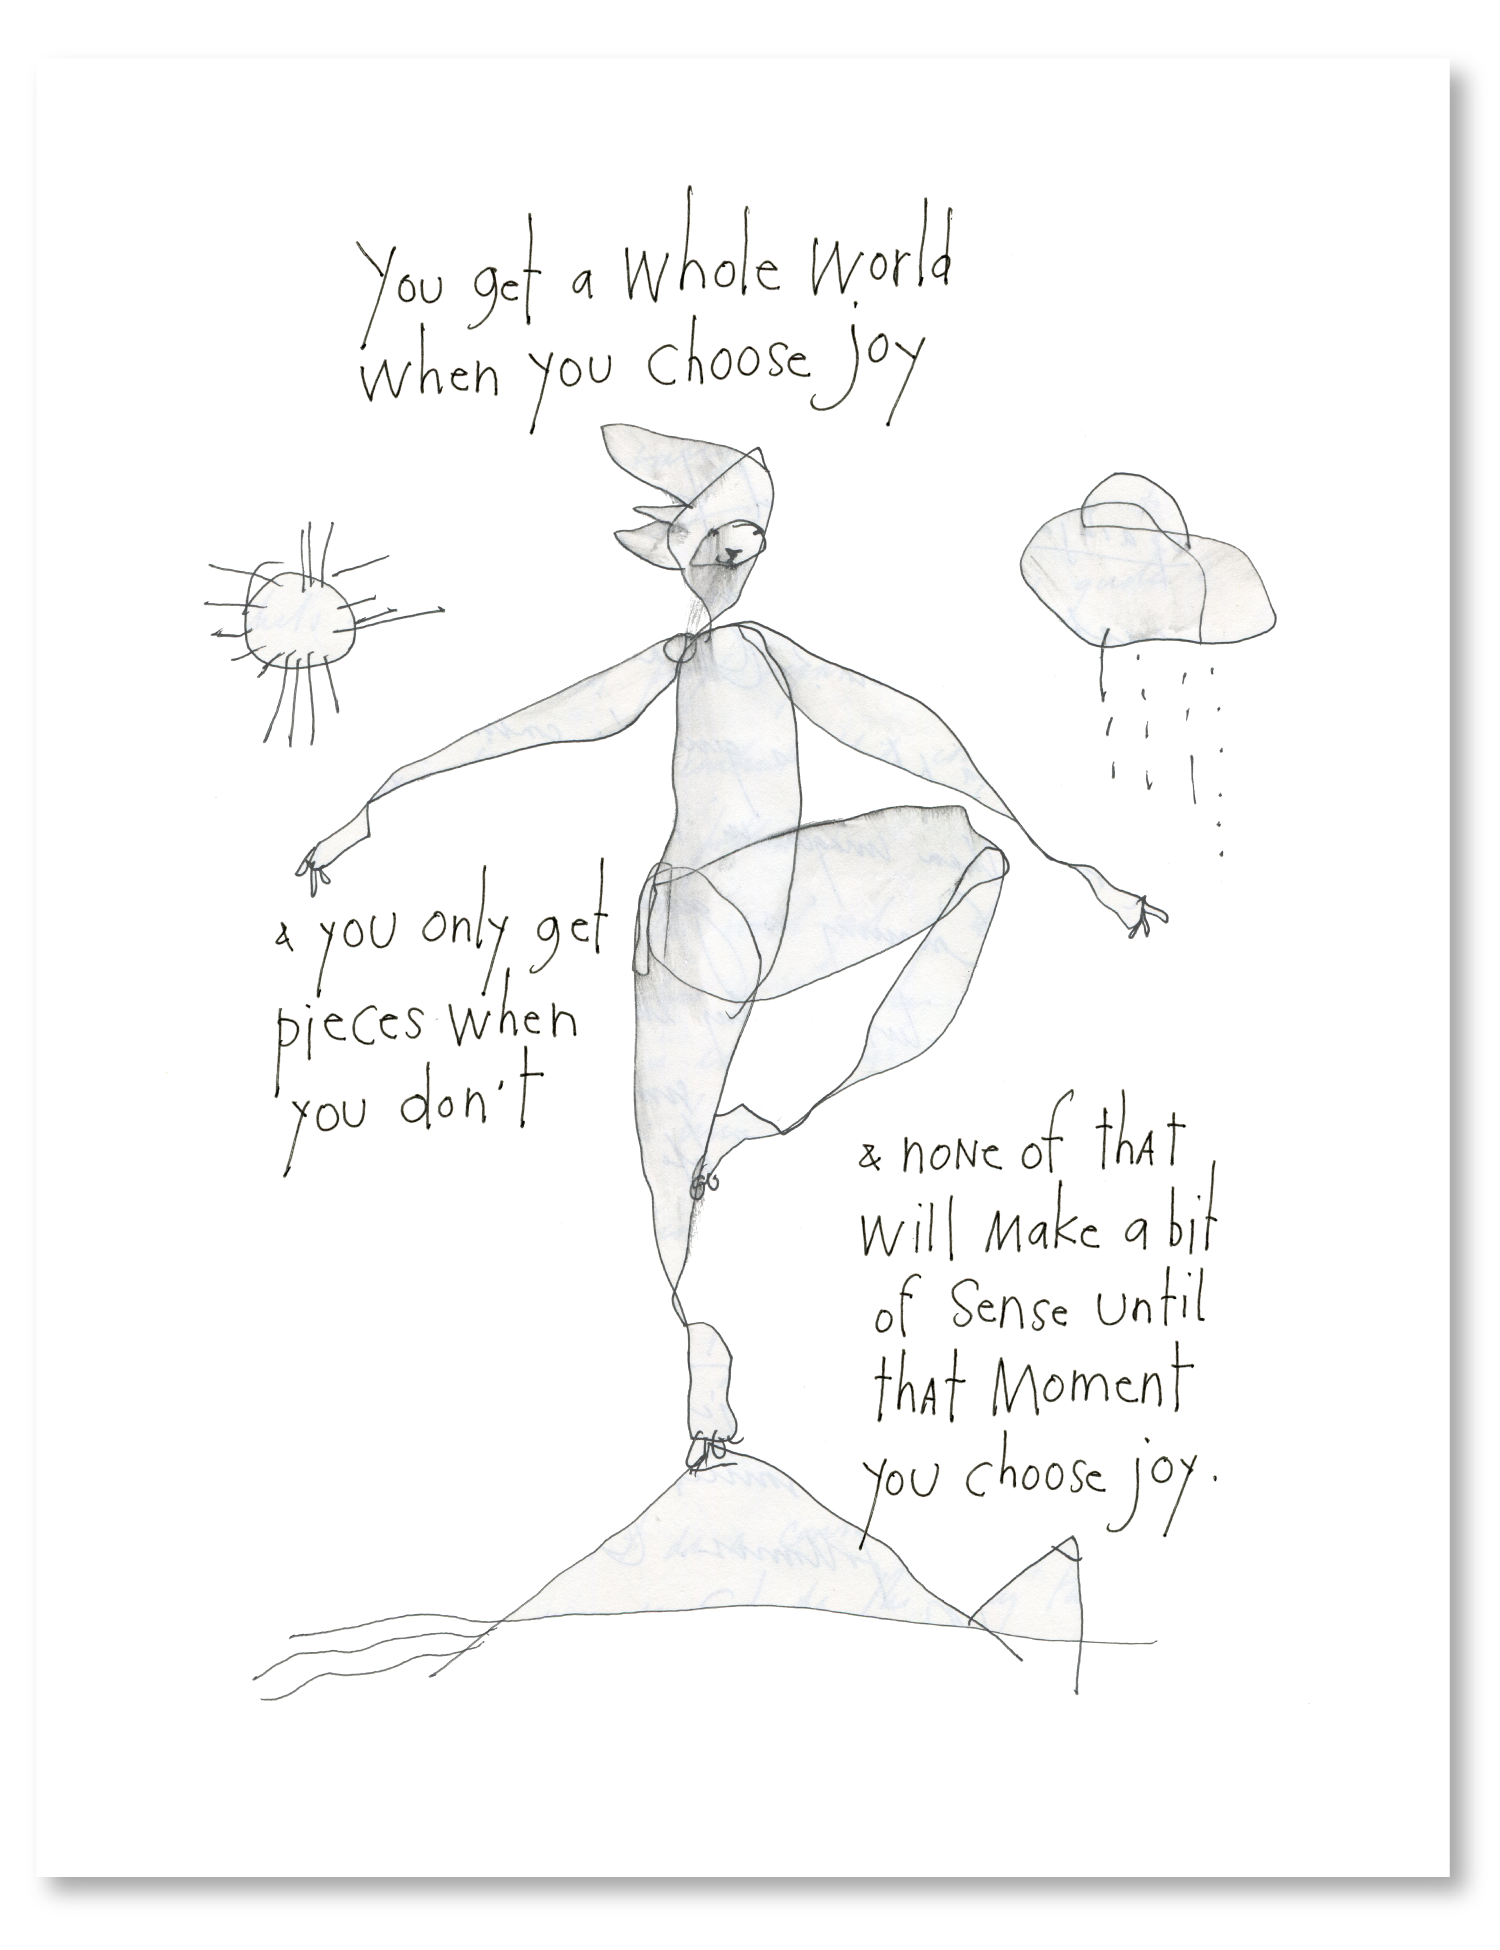 You get a Whole World
when you choose joy
& you only get
pieces when
you don't
& none of that
will make a bit
of Sense until
that Moment
you choose joy.